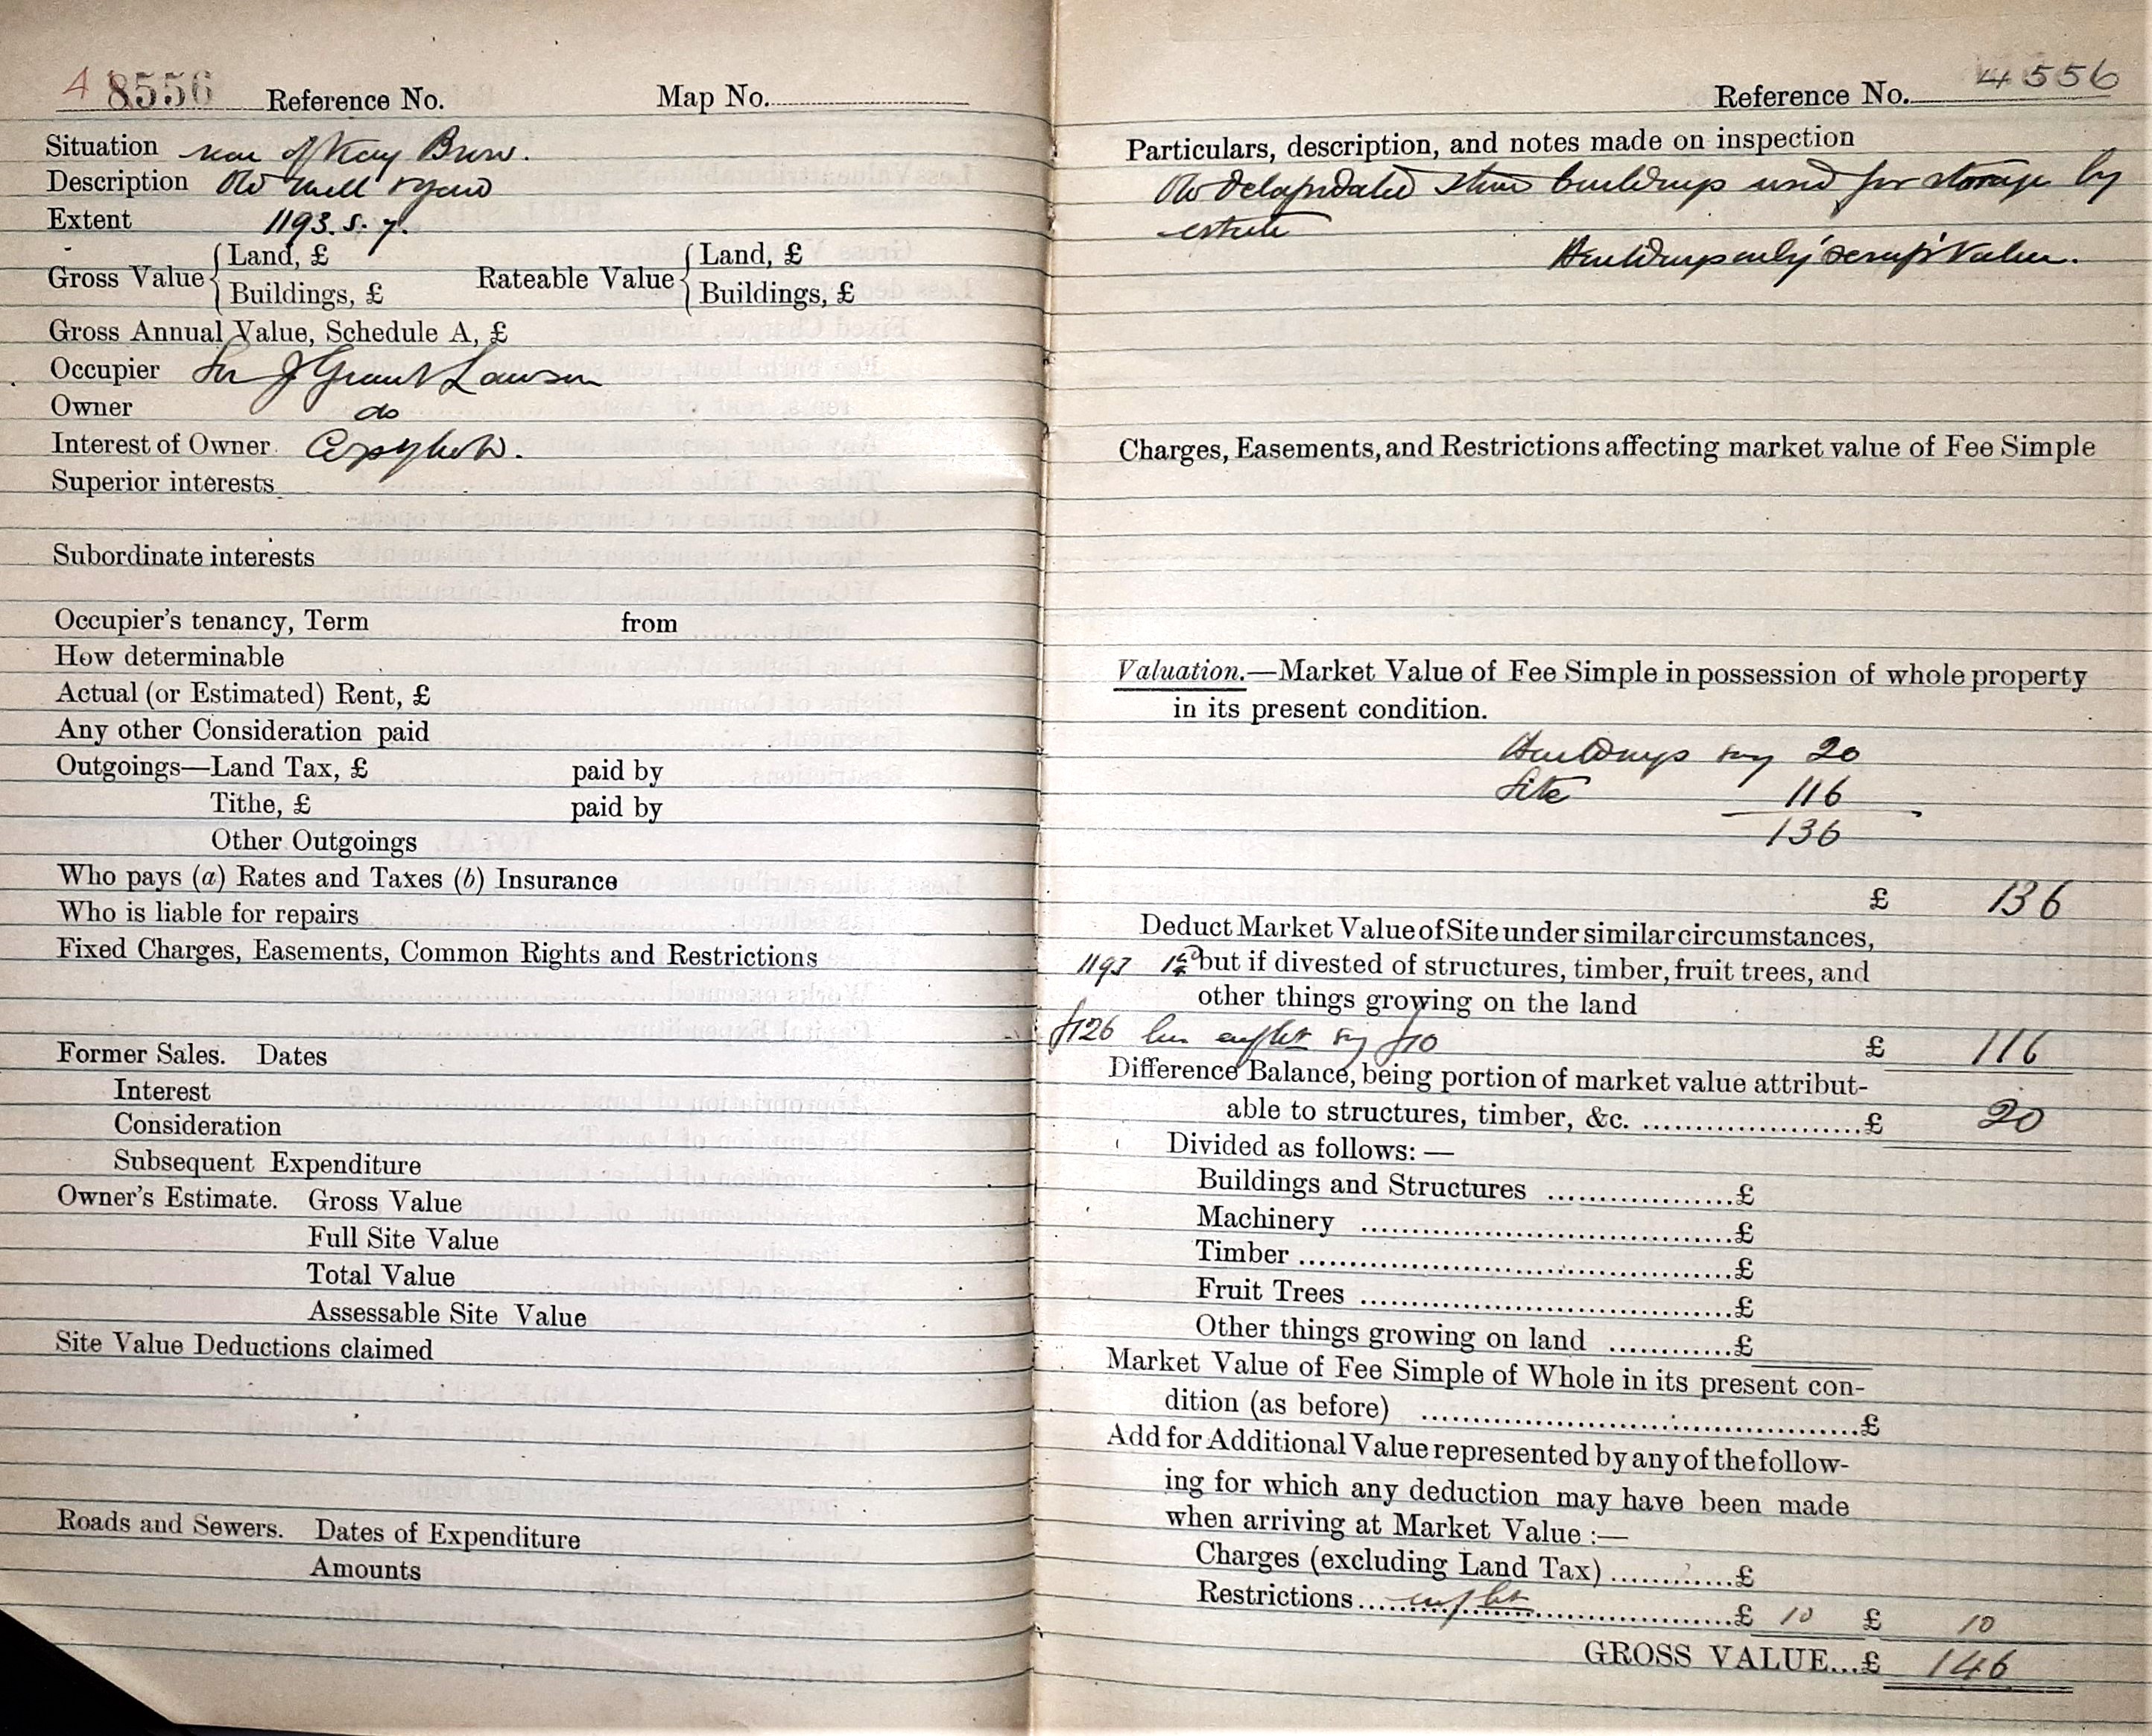 4 8556 Reference No. Map No.
Situation rear of Kay Brow.
Description Old mill & yard
Extent 1193. s. y.
Gross Value { Land, £ Rateable Value { Land, £
Buildings, £ Buildings, £
Gross Annual Value, Schedule A, £
Occupier Sir J Grant Lawson
Owner do
Interest of Owner. Copyhold.
Superior interests
Subordinate interests
Occupier's tenancy, Term from
How determinable
Actual (or Estimated) Rent, £
Any other Consideration paid
Outgoings—Land Tax, £ paid by
Tithe, £ paid by
Other Outgoings
Who pays (a) Rates and Taxes (b) Insurance
Who is liable for repairs
Fixed Charges, Easements, Common Rights and Restrictions
Former Sales. Dates
Interest
Consideration
Subsequent Expenditure
Owner's Estimate. Gross Value
Full Site Value
Total Value
Assessable Site Value
Site Value Deductions claimed
Roads and Sewers. Dates of Expenditure
Amounts
Reference No. 4556
Particulars, description, and notes made on inspection
Old delapidated stone buildings used for storage by
estate
Buildings only 'scrap' value.
Charges, Easements, and Restrictions affecting market value of Fee Simple
Valuation.—Market Value of Fee Simple in possession of whole property
in its present condition.
Buildings say 20
Site 116
136
£ 136
Deduct Market Value of Site under similar circumstances,
1193 but if divested of structures, timber, fruit trees, and
other things growing on the land
£126 less enfht say £10 £ 116
Difference Balance, being portion of market value attribut-
able to structures, timber, &c. ....................£ 20
Divided as follows: —
Buildings and Structures .................£
Machinery .................£
Timber .................£
Fruit Trees .................£
Other things growing on land ............£
Market Value of Fee Simple of Whole in its present con-
dition (as before) .................£
Add for Additional Value represented by any of the follow-
ing for which any deduction may have been made
when arriving at Market Value :—
Charges (excluding Land Tax) ............£
Restrictions....enfht.................£ 10 £ 10
GROSS VALUE...£ 146